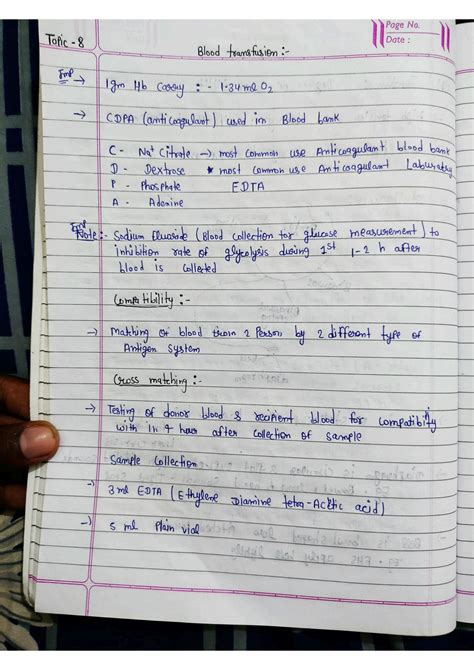 Page No.
Date :
Topic - 8
Blood transfusion :-
Imp → 1gm Hb Carry : - 1.34 ml O2
→ CDPA (anticoagulant) used in Blood bank
C - Na+ Citrate → most common use Anticoagulant blood bank
D - Dextrose * most common use Anticoagulant Laburatory
P - Phosphate EDTA
A - Adenine
Imp Note :- Sodium fluoride (Blood collection for glucose measurement) to
inhibition rate of glycolysis during 1st 1-2 h after
blood is collected
Compatibility :-
→ Matching of blood from 2 Person by 2 different type of
Antigen system
Cross matching :-
→ Testing of donor blood & recipient blood for compatibility
with in 4 hour after collection of sample
Sample Collection
→ 3 ml EDTA (Ethylene Diamine tetra-Acetic acid)
→ 5 ml Plain vial